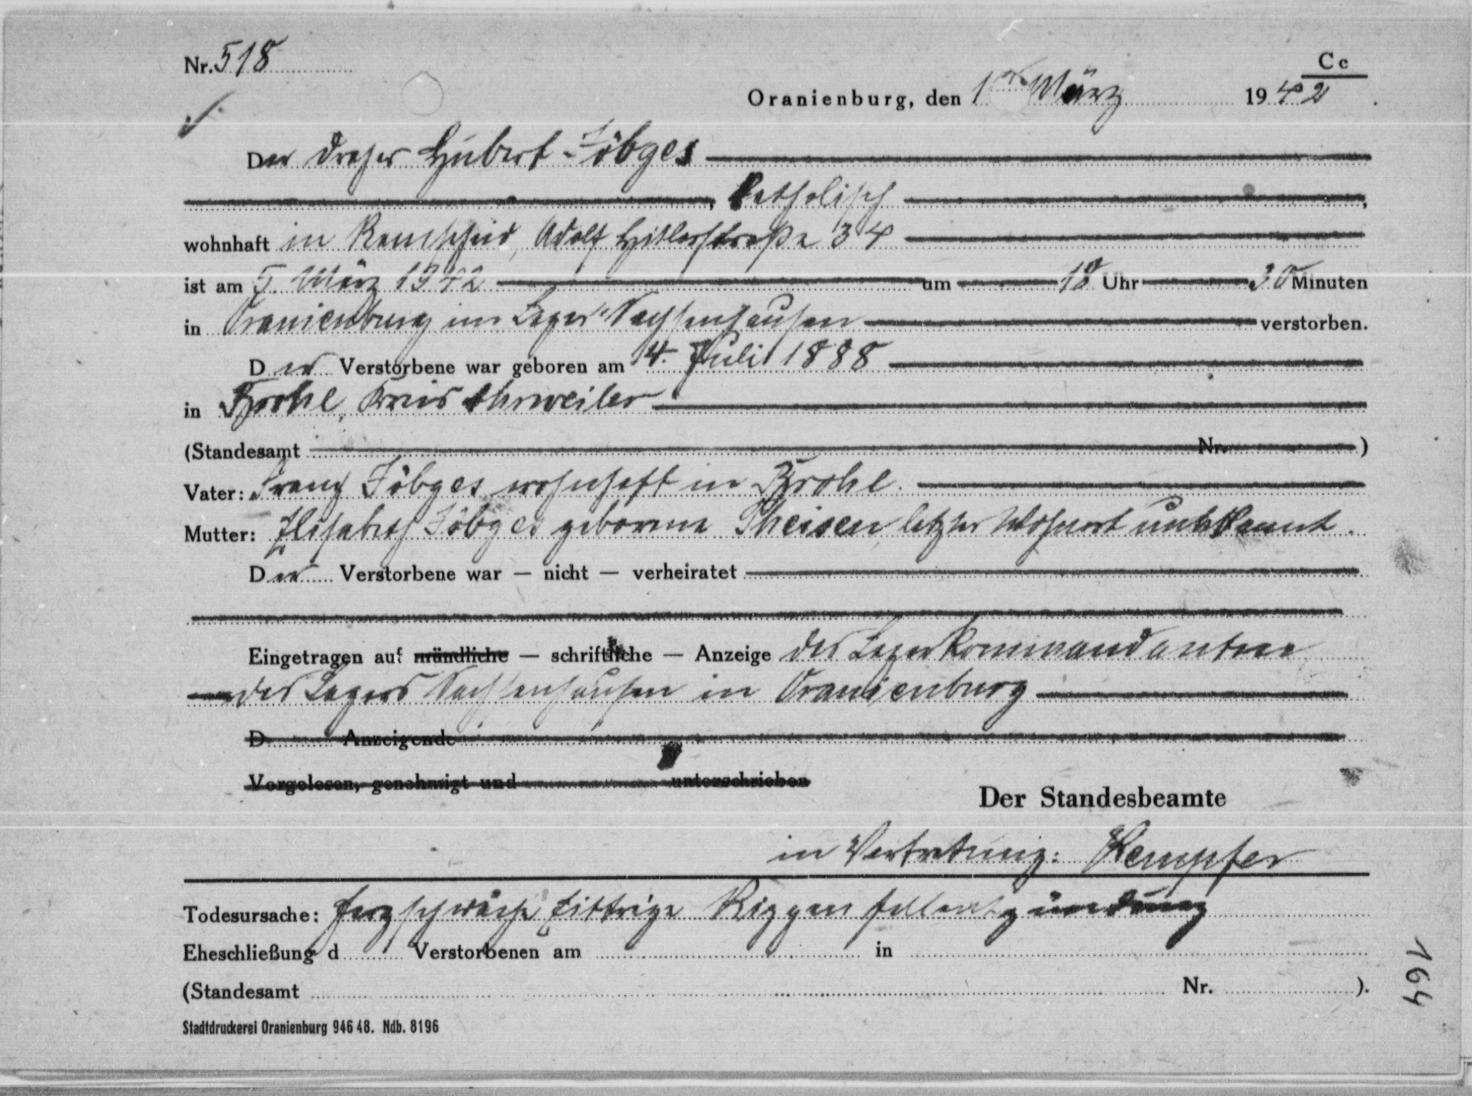 Nr. 518
Cc
Oranienburg, den März 1942.
Der Dreher Hubert Föbges
, katholisch ,
wohnhaft in Remscheid, Adolf Hitlerstraße 34
ist am 5. März 1942 um 18 Uhr 30 Minuten
in Oranienburg im Lager Sachsenhausen verstorben.
Der Verstorbene war geboren am 4. Juli 1888
in Brohl, Kreis Ahrweiler
(Standesamt Nr. )
Vater: Franz Föbges wohnhaft in Brohl.
Mutter: Elisabeth Föbges geborene Theisen, letzter Wohnort unbekannt.
Der Verstorbene war — nicht — verheiratet
Eingetragen auf mündliche — schriftliche — Anzeige des Lagerkommandanten
des Lagers Sachsenhausen in Oranienburg
D Anzeigende
Vorgelesen, genehmigt und unterschrieben
Der Standesbeamte
in Vertretung: Kempfer
Todesursache: Herzschwäche, Eittrige Rippenfellentzündung
Eheschließung d Verstorbenen am in
(Standesamt Nr. ).
Stadtdruckerei Oranienburg 946 48. Ndb. 8196
164